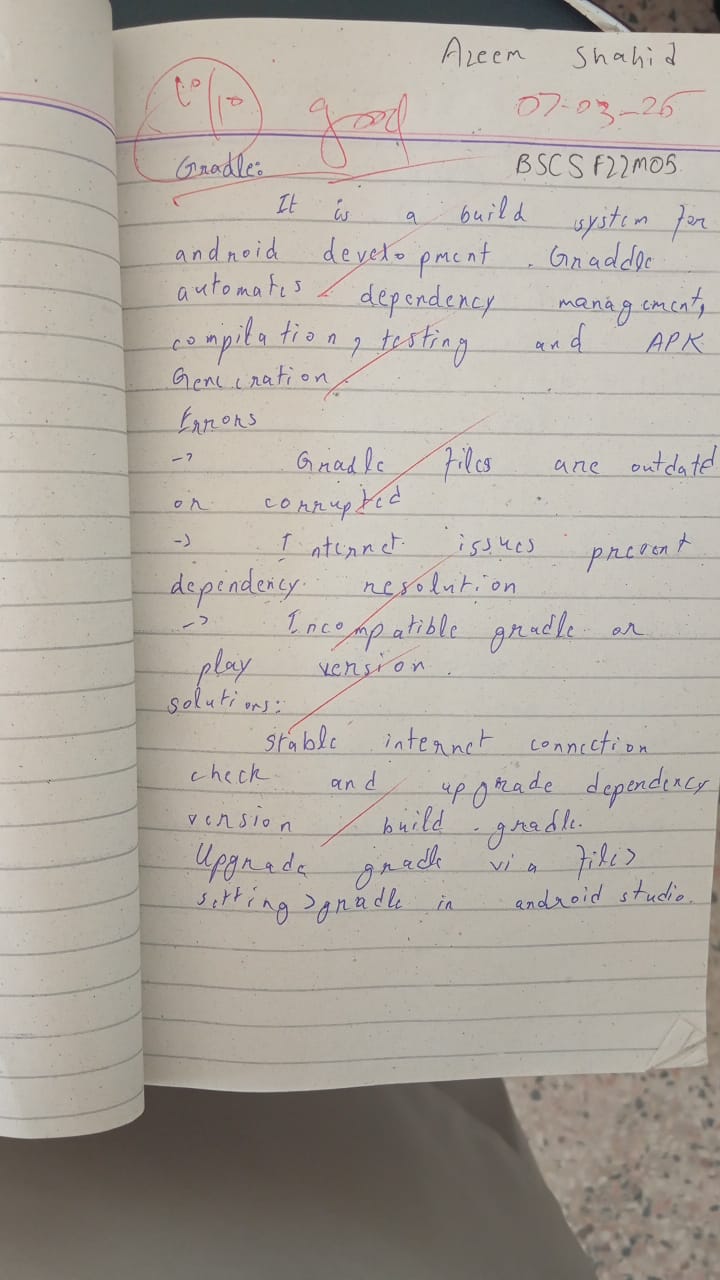 Azeem Shahid
10/10 good 07-03-25
Gradle: BSCSF22M05
It is a build system for
android development. Graddle
automates dependency management,
compilation, testing and APK
Generation
Errors
-> Gradle files are outdated
or corrupted
-> Internet issues prevent
dependency resolution
-> Incompatible gradle or
play version.
solutions:
stable internet connection
check and upgrade dependency
version build.gradle.
Upgrade gradle via file>
setting>gradle in android studio.